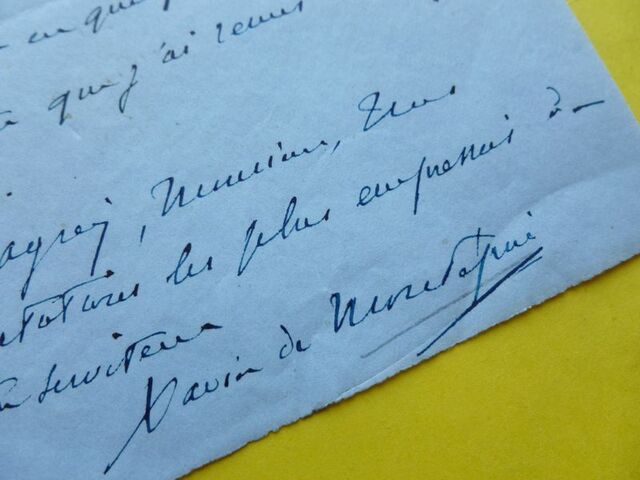 en que
que j'ai remis
agréez, Monsieur, tous
les plus empressés de
serviteur
Xavier de Montépin